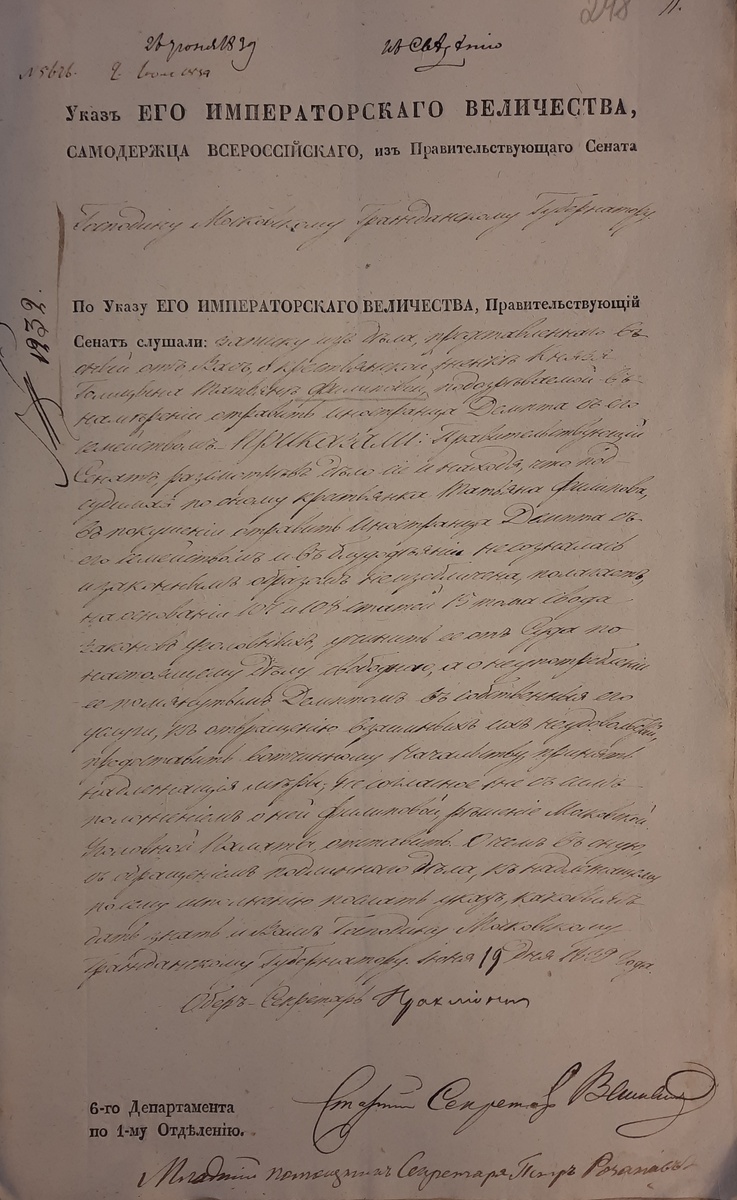 248 11.
26 июня 1839 къ Свѣдѣнію
N 5626. 2. июля 1839
Указъ ЕГО ИМПЕРАТОРСКАГО ВЕЛИЧЕСТВА,
САМОДЕРЖЦА ВСЕРОССІЙСКАГО, изъ Правительствующаго Сената
Господину Московскому Гражданскому Губернатору.
1939.
По Указу ЕГО ИМПЕРАТОРСКАГО ВЕЛИЧЕСТВА, Правительствующій
Сенатъ слушали: записку изъ дѣла, представленнаго въ
оный отъ Васъ, о крестьянской женкѣ Князя
Голицына Татьянѣ Филиповой, подозрѣваемой въ
намѣреніи отравить иностранца Демита съ его
семействомъ. ПРИКАЗАЛИ: Правительствующій
Сенатъ разсмотрѣвъ дѣло сіе и находя, что под
судимая по оному крестьянка Татьяна Филипова,
въ покушеніи отравить Иностранца Демита съ
его семействомъ и въ блудодѣяніи не созналась
и законнымъ образомъ неизобличена, полагаетъ,
на основаніи 107 и 108 статей 15 тома Свода
законовъ уголовныхъ, учинить ее отъ Суда по
настоящему дѣлу свободною, а о неупотребленіи
ее помянутымъ Демитомъ въ собственныя его
услуги, къ отвращенію взаимныхъ ихъ неудовольствій,
предоставить вотчинному Начальству принять
надлежащія мѣры; не согласное же съ симъ
положеніемъ о ней Филиповой, рѣшеніе Московской
Уголовной Палаты, отставить. О чемъ въ оную,
съ обращеніемъ подлиннаго дѣла, къ надлежащему
по нему исполненію послать указъ, каковымъ
дать знать и Вамъ Господину Московскому
Гражданскому Губернатору. Іюня 19 дня 1839 года.
Оберъ-Секретарь
Старшій Секретарь
6-го Департамента
по 1-му Отдѣленію.
Младшій помощникъ Секретаря Петръ